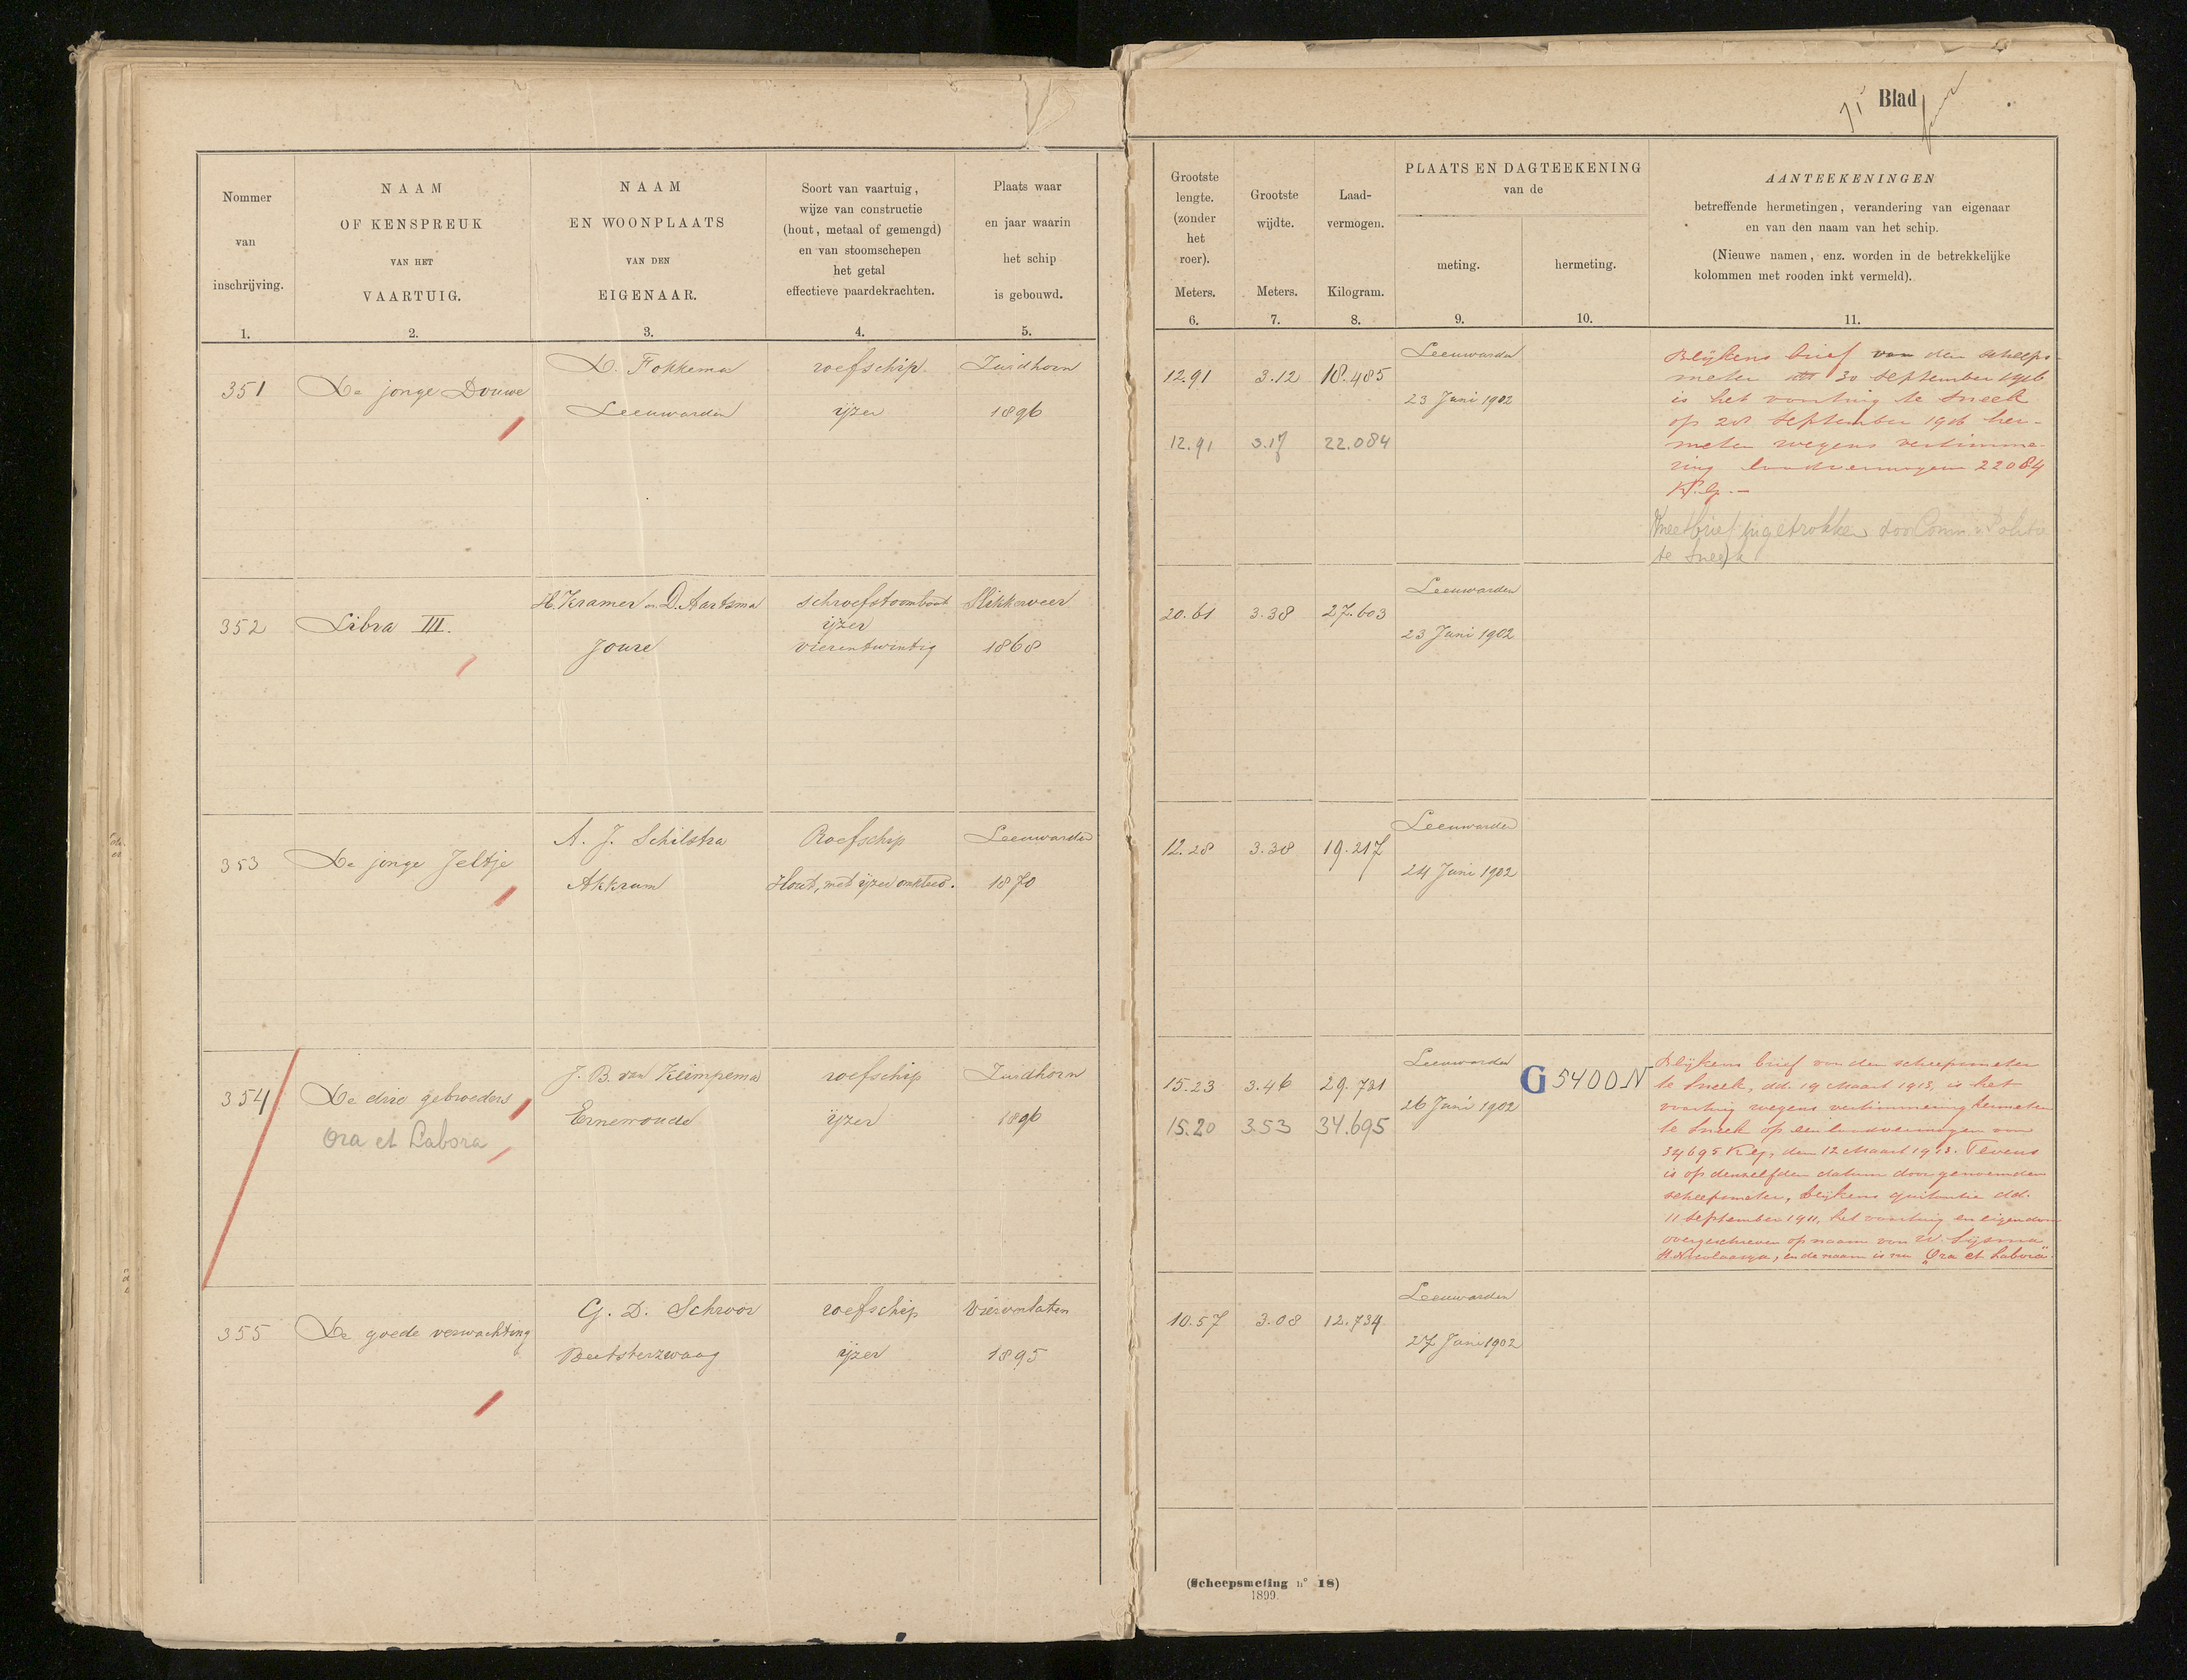 71e Blad
Nommer
van
inschrijving.
1.
NAAM
OF KENSPREUK
VAN HET
VAARTUIG.
2.
NAAM
EN WOONPLAATS
VAN DEN
EIGENAAR.
3.
Soort van vaartuig,
wijze van constructie
(hout, metaal of gemengd)
en van stoomschepen
het getal
effectieve paardekrachten.
4.
Plaats waar
en jaar waarin
het schip
is gebouwd.
5.
Grootste
lengte.
(zonder
het
roer).
Meters.
6.
Grootste
wijdte.
Meters.
7.
Laad-
vermogen.
Kilogram.
8.
PLAATS EN DAGTEEKENING
van de
meting.
9.
hermeting.
10.
AANTEEKENINGEN
betreffende hermetingen, verandering van eigenaar
en van den naam van het schip.
(Nieuwe namen, enz. worden in de betrekkelijke
kolommen met rooden inkt vermeld).
11.
351
De jonge Douwe
D. Fokkema
Leeuwarden
roefschip
ijzer
Zuidhorn
1896
12.91 3.12 18.485
12.91 3.17 22.084
Leeuwarden
23 Juni 1902
Blijkens brief van den scheeps-
meter 30 september 1916
is het vaartuig te Sneek
op 28 September 1916 her-
meten wegens vertimme-
ring laadvermogen 22084
K.g.—
Meetbrief ingetrokken door Comm. v. Politie
te Sneek
352
Libra III.
H. Kramer en D. Aartsma
Joure
schroefstoomboot
ijzer
vierentwintig
Slikkerveer
1868
20.61 3.38 27.603
Leeuwarden
23 Juni 1902
353
De jonge Jeltje
A. J. Schilstra
Akkrum
Roefschip
Hout, met ijzer omkleed.
Leeuwarden
1870
12.28 3.38 19.217
Leeuwarden
24 Juni 1902
354
De drie gebroeders
Ora et Labora
J. B. van Klimpema
Ernewoude
roefschip
ijzer
Zuidhorn
1896
15.23 3.46 29.721
15.20 3.53 34.695
Leeuwarden
26 Juni 1902
G 5400 N
Blijkens brief van den scheepsmeter
te Sneek, dd. 19 Maart 1913, is het
vaartuig wegens vertimmering hermeten
te Sneek op een laadvermogen van
34695 K.g. den 12 Maart 1913. Tevens
is op denzelfden datum door genoemden
scheepsmeter, blijkens quitantie dd.
11 September 1911, het vaartuig en eigendom
overgeschreven op naam van W. Sijsma
St. Nicolaasga, en de naam is nu "Ora et Labora"
355
De goede verwachting
G. D. Schroor
Beetsterzwaag
roefschip
ijzer
Vierverlaten
1895
10.57 3.08 12.734
Leeuwarden
27 Juni 1902
(Scheepsmeting n° 18)
1899.